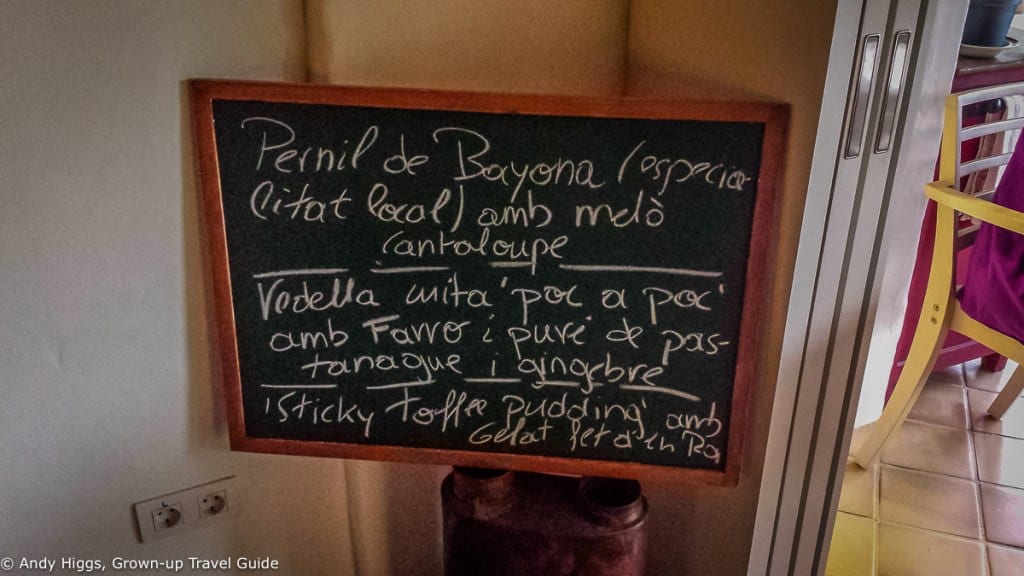 Pernil de Bayona (especia-
litat local) amb melò
Cantaloupe
Vedella cuita 'poc a poc'
amb Farro i puré de pas-
tanague i gingebre
'Sticky Toffee pudding' amb
Gelat fet a en Ra
© Andy Higgs, Grown-up Travel Guide